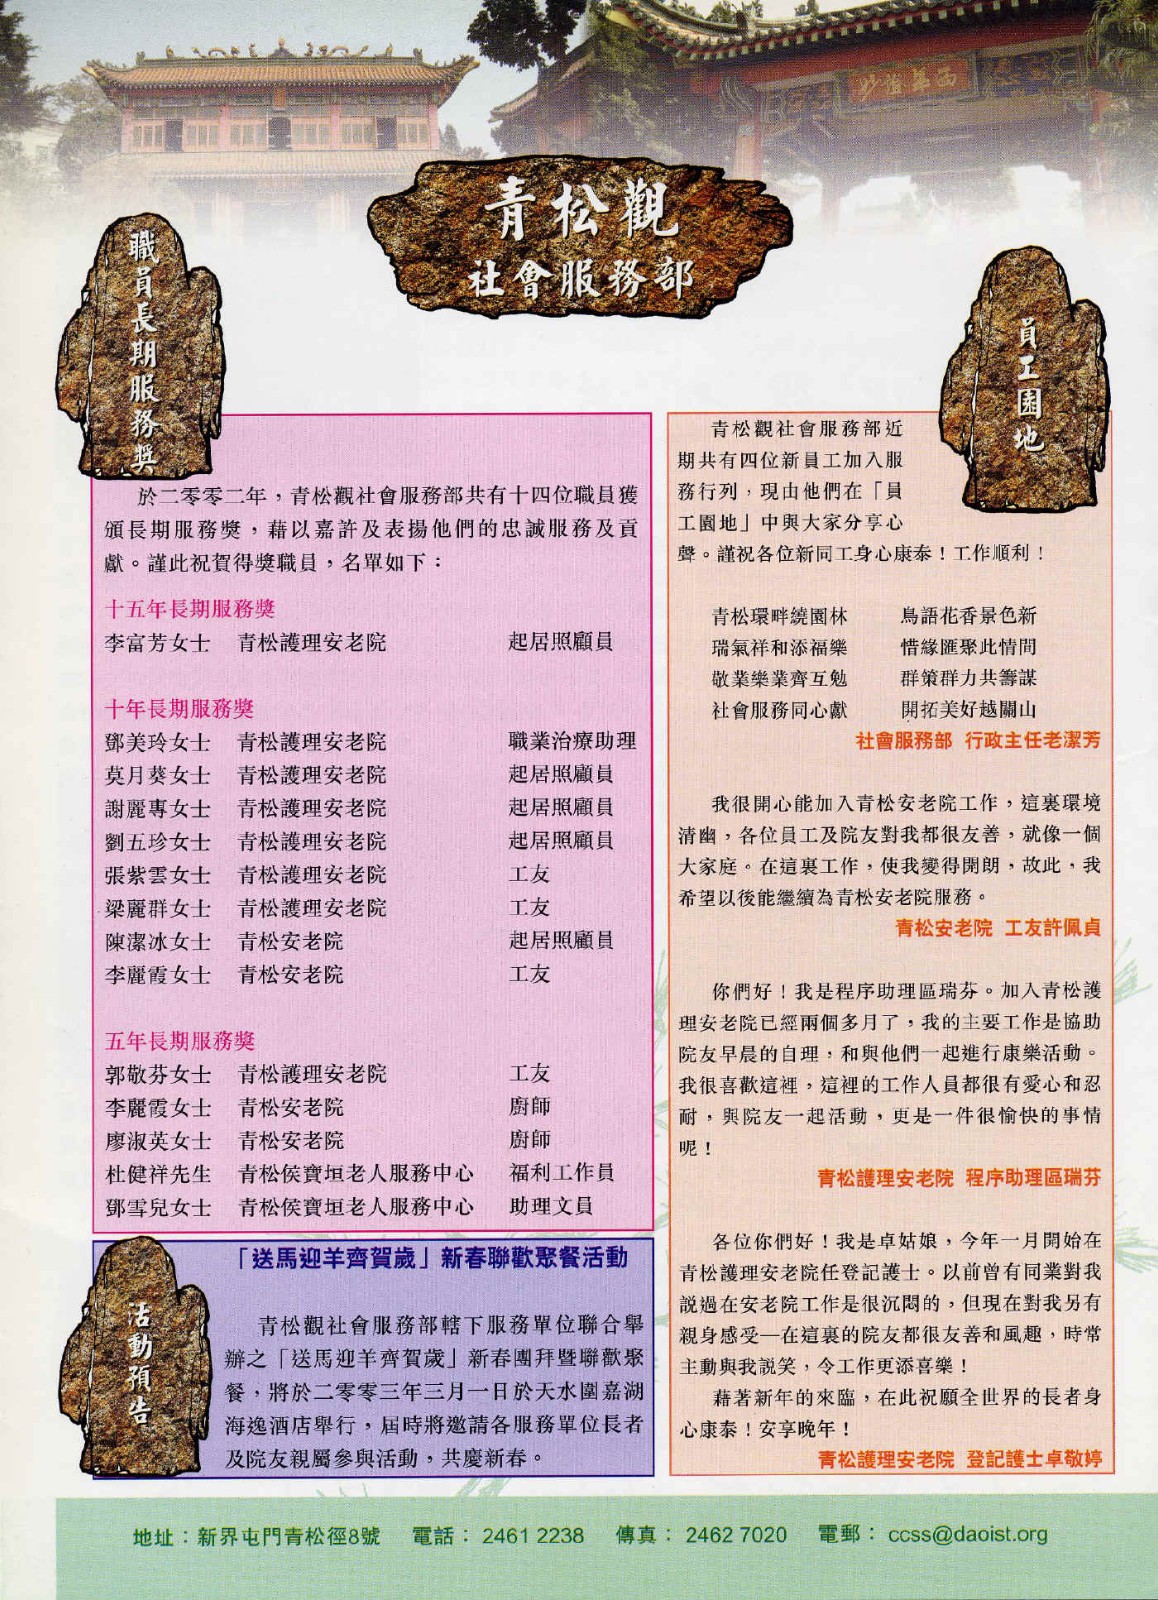 青松觀
社會服務部
職員長期服務獎
於二零零二年，青松觀社會服務部共有十四位職員獲
頒長期服務獎，藉以嘉許及表揚他們的忠誠服務及貢
獻。謹此祝賀得獎職員，名單如下：
十五年長期服務獎
李富芳女士 青松護理安老院 起居照顧員
十年長期服務獎
鄧美玲女士 青松護理安老院 職業治療助理
莫月葵女士 青松護理安老院 起居照顧員
謝麗專女士 青松護理安老院 起居照顧員
劉五珍女士 青松護理安老院 起居照顧員
張紫雲女士 青松護理安老院 工友
梁麗群女士 青松護理安老院 工友
陳潔冰女士 青松安老院 起居照顧員
李麗霞女士 青松安老院 工友
五年長期服務獎
郭敬芬女士 青松護理安老院 工友
李麗霞女士 青松安老院 廚師
廖淑英女士 青松安老院 廚師
杜健祥先生 青松侯寶垣老人服務中心 福利工作員
鄧雪兒女士 青松侯寶垣老人服務中心 助理文員
活動預告
「送馬迎羊齊賀歲」新春聯歡聚餐活動
青松觀社會服務部轄下服務單位聯合舉
辦之「送馬迎羊齊賀歲」新春團拜暨聯歡聚
餐，將於二零零三年三月一日於天水圍嘉湖
海逸酒店舉行，屆時將邀請各服務單位長者
及院友親屬參與活動，共慶新春。
員工園地
青松觀社會服務部近
期共有四位新員工加入服
務行列，現由他們在「員
工園地」中與大家分享心
聲。謹祝各位新同工身心康泰！工作順利！
青松環畔繞園林 鳥語花香景色新
瑞氣祥和添福樂 惜緣匯聚此情間
敬業樂業齊互勉 群策群力共籌謀
社會服務同心獻 開拓美好越關山
社會服務部 行政主任老潔芳
我很開心能加入青松安老院工作，這裏環境
清幽，各位員工及院友對我都很友善，就像一個
大家庭。在這裏工作，使我變得開朗，故此，我
希望以後能繼續為青松安老院服務。
青松安老院 工友許佩貞
你們好！我是程序助理區瑞芬。加入青松護
理安老院已經兩個多月了，我的主要工作是協助
院友早晨的自理，和與他們一起進行康樂活動。
我很喜歡這裡，這裡的工作人員都很有愛心和忍
耐，與院友一起活動，更是一件很愉快的事情
呢！
青松護理安老院 程序助理區瑞芬
各位你們好！我是卓姑娘，今年一月開始在
青松護理安老院任登記護士。以前曾有同業對我
說過在安老院工作是很沉悶的，但現在對我另有
親身感受—在這裏的院友都很友善和風趣，時常
主動與我說笑，令工作更添喜樂！
藉著新年的來臨，在此祝願全世界的長者身
心康泰！安享晚年！
青松護理安老院 登記護士卓敬婷
地址：新界屯門青松徑8號 電話： 2461 2238 傳真： 2462 7020 電郵： ccss@daoist.org